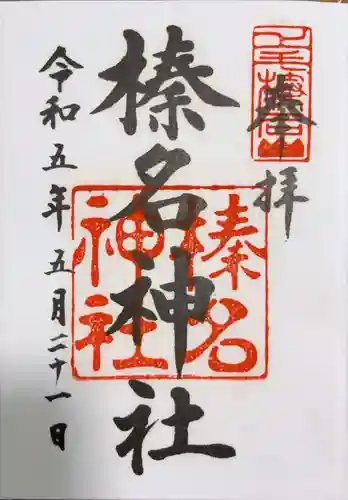 奉拝
榛名神社
榛名神社
令和五年五月二十一日